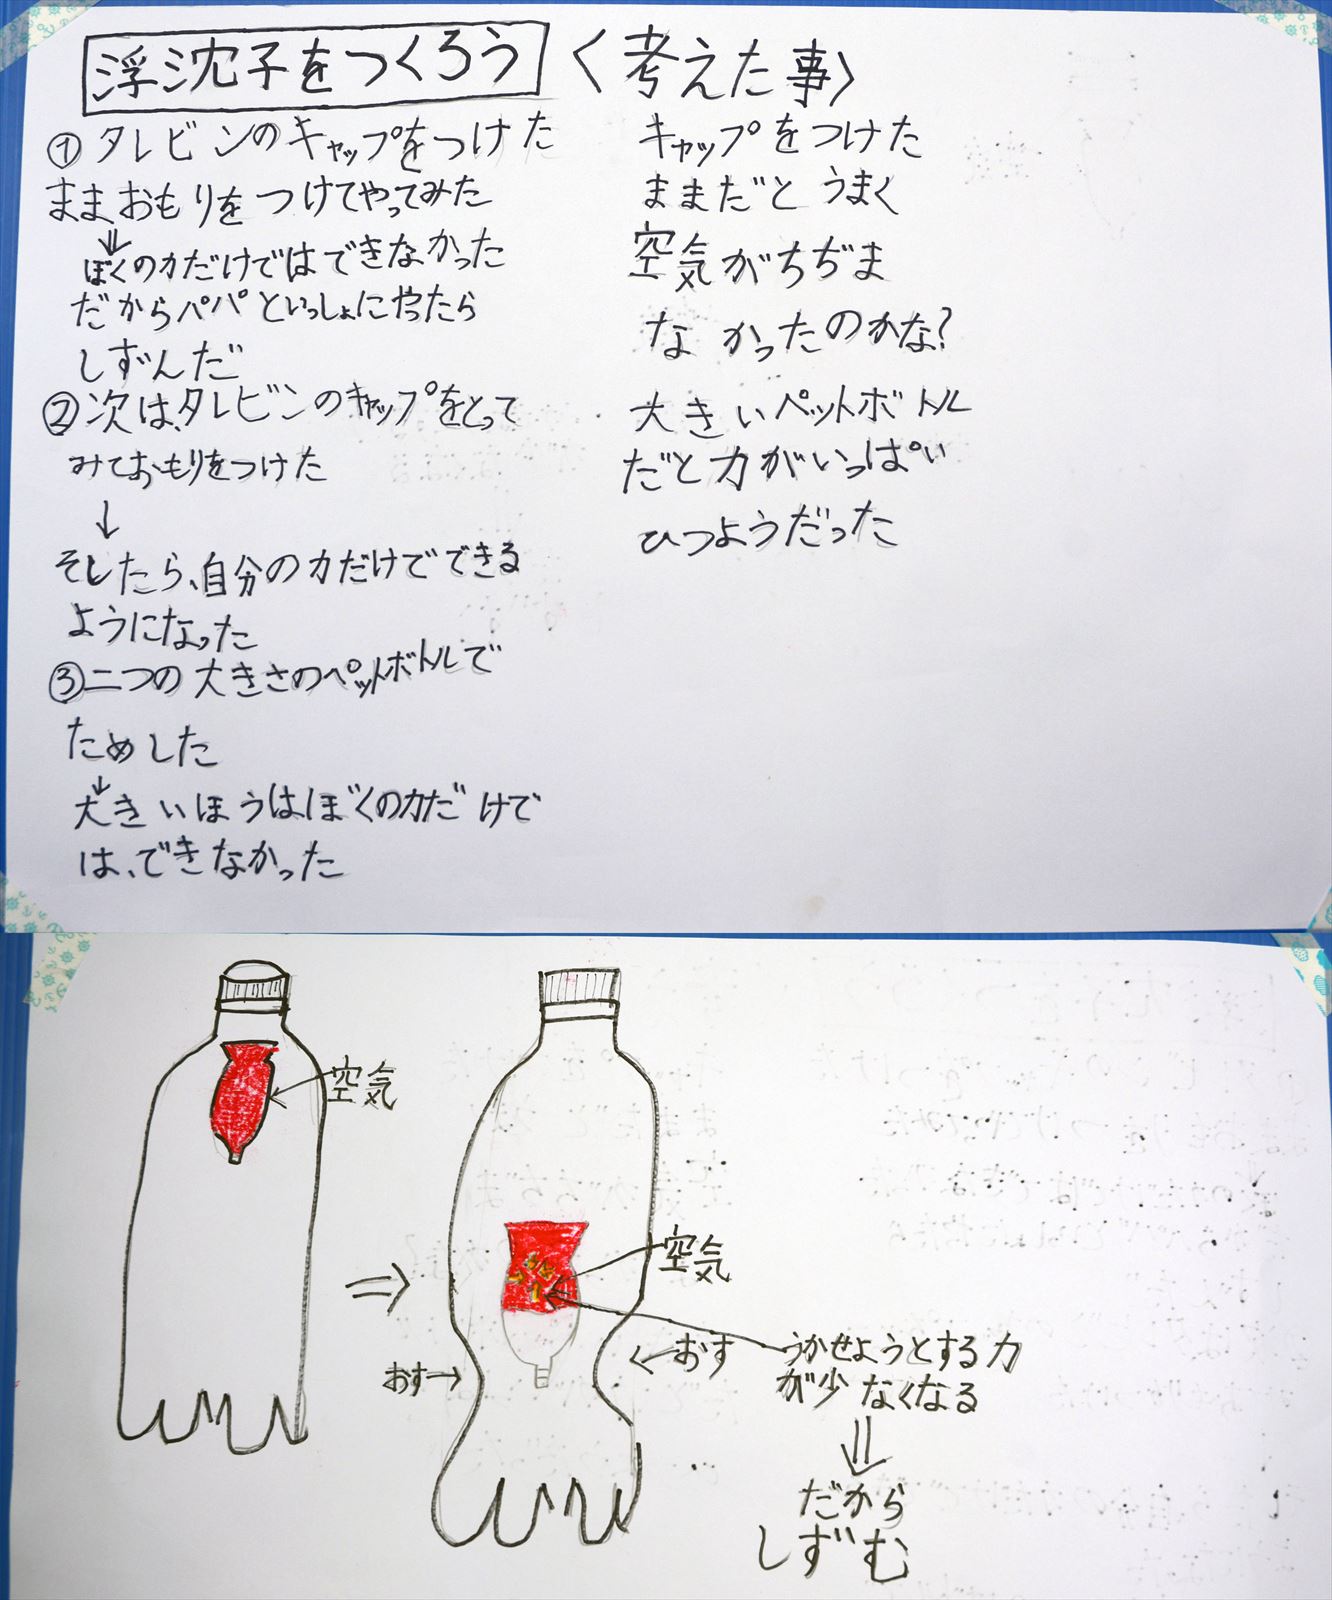 浮沈子をつくろう
①タレビンのキャップをつけた
ままおもりをつけてやってみた
⇓
ぼくの力だけではできなかった
だからパパといっしょにやったら
しずんだ
②次は、タレビンのキャップをとって
みておもりをつけた
↓
そしたら、自分の力だけでできる
ようになった
③二つの大きさのペットボトルで
ためした
↓
大きいほうはぼくの力だけで
は、できなかった
〈考えた事〉
キャップをつけた
ままだとうまく
空気がちぢま
なかったのかな?
大きいペットボトル
だと力がいっぱい
ひつようだった
空気
⇒
空気
おす→
←おす
うかせようとする力
が少なくなる
⇓
だから
しずむ